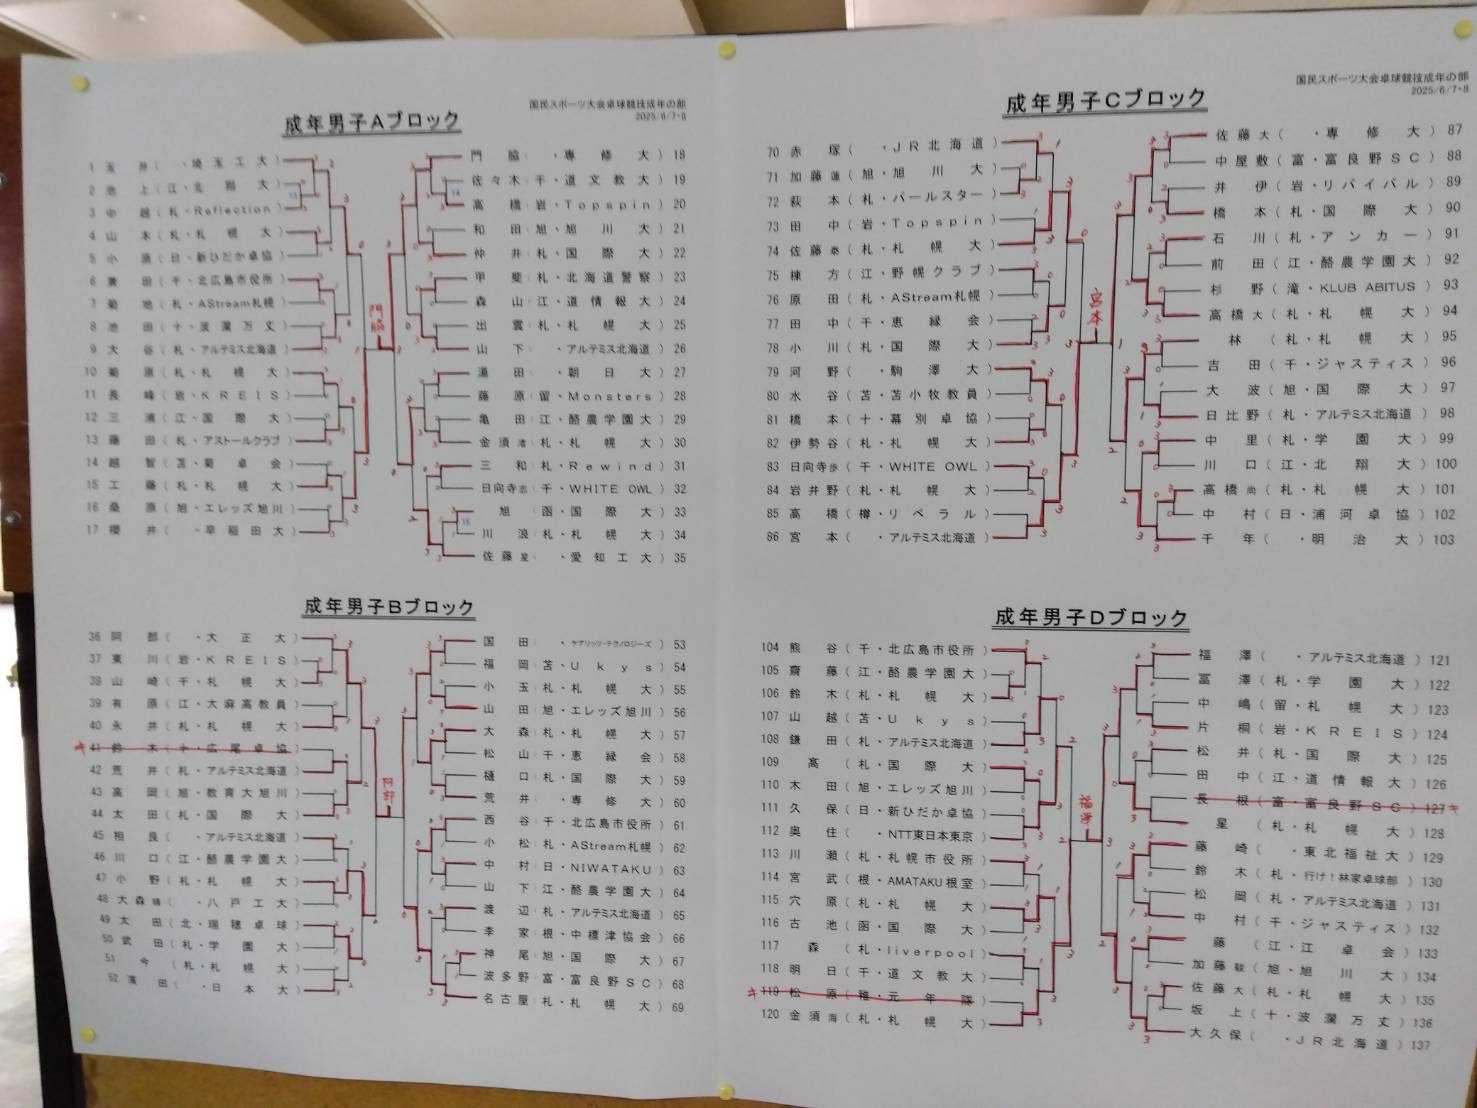 国民スポーツ大会卓球競技成年の部
2025/6/7・8
成年男子Aブロック
1 玉井(・埼玉工大)
2 池上(江・北翔大)
3 中越(札・Reflection)
4 山本(札・札幌大)
5 小原(日・新ひだか卓協)
6 兼田(千・北広島市役所)
7 菊地(札・AStream札幌)
8 池田(十・波瀾万丈)
9 大谷(札・アルテミス北海道)
10 菊原(札・札幌大)
11 長峰(岩・KREIS)
12 三浦(江・国際大)
13 藤田(札・アストールクラブ)
14 越智(苫・菊卓会)
15 工藤(札・札幌大)
16 桑原(旭・エレッズ旭川)
17 櫻井(・早稲田大)
門脇(・専修大)18
佐々木(千・道文教大)19
高橋(岩・Topspin)20
和田(旭・旭川大)21
仲井(札・国際大)22
甲斐(札・北海道警察)23
森山(江・道情報大)24
出雲(札・札幌大)25
山下(・アルテミス北海道)26
湯田(・朝日大)27
藤原(留・Monsters)28
亀田(江・酪農学園大)29
金須渚(札・札幌大)30
三和(札・Rewind)31
日向寺志(千・WHITE OWL)32
旭(函・国際大)33
川浪(札・札幌大)34
佐藤星(・愛知工大)35
門脇
成年男子Bブロック
36 阿部(・大正大)
37 東川(岩・KREIS)
38 山崎(千・札幌大)
39 有原(江・大麻高教員)
40 永井(札・札幌大)
キ 41 鈴木(千・広尾卓協)
42 荒井(札・アルテミス北海道)
43 高岡(旭・教育大旭川)
44 太田(札・国際大)
45 相良(・アルテミス北海道)
46 川口(江・酪農学園大)
47 小野(札・札幌大)
48 大森(・八戸工大)
49 太田(北・瑞穂卓球)
50 武田(札・学園大)
51 今(札・札幌大)
52 濱田(・日本大)
国田(・ケアリッツ・テクノロジーズ)53
福岡(苫・Ukys)54
小玉(札・札幌大)55
山田(旭・エレッズ旭川)56
大森(札・札幌大)57
松山(千・恵縁会)58
樋口(札・国際大)59
荒井(・専修大)60
西谷(千・北広島市役所)61
小松(札・AStream札幌)62
中村(日・NIWATAKU)63
山下(江・酪農学園大)64
渡辺(札・アルテミス北海道)65
李家(根・中標津協会)66
神尾(旭・国際大)67
波多野(富・富良野SC)68
名古屋(札・札幌大)69
阿部
国民スポーツ大会卓球競技成年の部
2025/6/7・8
成年男子Cブロック
70 赤塚(・JR北海道)
71 加藤蓮(旭・旭川大)
72 萩本(札・パールスター)
73 田中(岩・Topspin)
74 佐藤泰(札・札幌大)
75 棟方(江・野幌クラブ)
76 原田(札・AStream札幌)
77 田中(千・恵縁会)
78 小川(札・国際大)
79 河野(・駒澤大)
80 水谷(苫・苫小牧教員)
81 橋本(十・幕別卓協)
82 伊勢谷(札・札幌大)
83 日向寺歩(千・WHITE OWL)
84 岩井野(札・札幌大)
85 高橋(樽・リベラル)
86 宮本(・アルテミス北海道)
佐藤大(・専修大)87
中屋敷(富・富良野SC)88
井伊(岩・リバイバル)89
橋本(札・国際大)90
石川(札・アンカー)91
前田(江・酪農学園大)92
杉野(滝・KLUB ABITUS)93
高橋大(札・札幌大)94
林(札・札幌大)95
吉田(千・ジャスティス)96
大波(旭・国際大)97
日比野(札・アルテミス北海道)98
中里(札・学園大)99
川口(江・北翔大)100
高橋尚(札・札幌大)101
中村(日・浦河卓協)102
千年(・明治大)103
宮本
成年男子Dブロック
104 熊谷(千・北広島市役所)
105 齋藤(江・酪農学園大)
106 鈴木(札・札幌大)
107 山越(苫・Ukys)
108 鎌田(札・アルテミス北海道)
109 髙(札・国際大)
110 木田(旭・エレッズ旭川)
111 久保(日・新ひだか卓協)
112 奥住(・NTT東日本東京)
113 川瀬(札・札幌市役所)
114 宮武(根・AMATAKU根室)
115 穴原(札・札幌大)
116 古池(函・国際大)
117 森(札・liverpool)
118 明日(千・道文教大)
キ 119 松原(稚・元年隊)
120 金須海(札・札幌大)
福澤(・アルテミス北海道)121
冨澤(札・学園大)122
中嶋(留・札幌大)123
片桐(岩・KREIS)124
松井(札・国際大)125
田中(江・道情報大)126
長根(富・富良野SC)127 キ
星(札・札幌大)128
藤崎(・東北福祉大)129
鈴木(札・行け!林家卓球部)130
松岡(札・アルテミス北海道)131
中村(千・ジャスティス)132
藤(江・江卓会)133
加藤毅(旭・旭川大)134
佐藤大(札・札幌大)135
坂上(十・波瀾万丈)136
大久保(・JR北海道)137
福澤